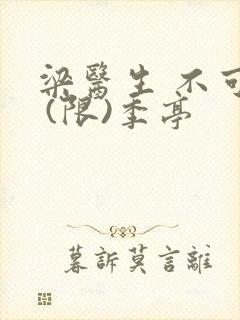 梁醫生 不可
(限)季亭
暮訴莫言離